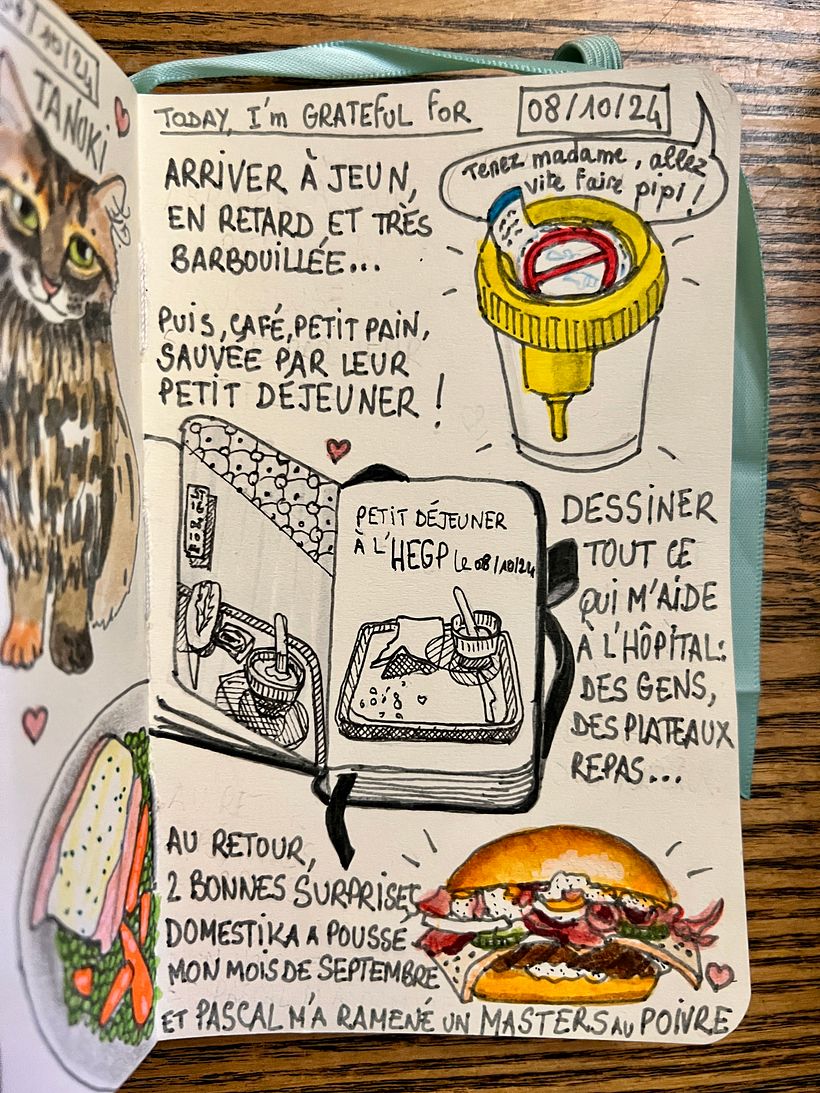 /10/24
TANUKI
TODAY, I'm GRATEFUL FOR
08/10/24
Tenez madame, allez
vite faire pipi!
ARRIVER À JEUN,
EN RETARD ET TRÈS
BARBOUILLÉE...
PUIS, CAFÉ, PETIT PAIN,
SAUVÉE PAR LEUR
PETIT DÉJEUNER !
PETIT DÉJEUNER
À L'HEGP le 08/10/24
DESSINER
TOUT CE
QUI M'AIDE
À L'HÔPITAL:
DES GENS,
DES PLATEAUX
REPAS...
AU RETOUR,
2 BONNES SURPRISES
DOMESTIKA A POUSSÉ
MON MOIS DE SEPTEMBRE
ET PASCAL M'A RAMENÉ UN MASTERS AU POIVRE